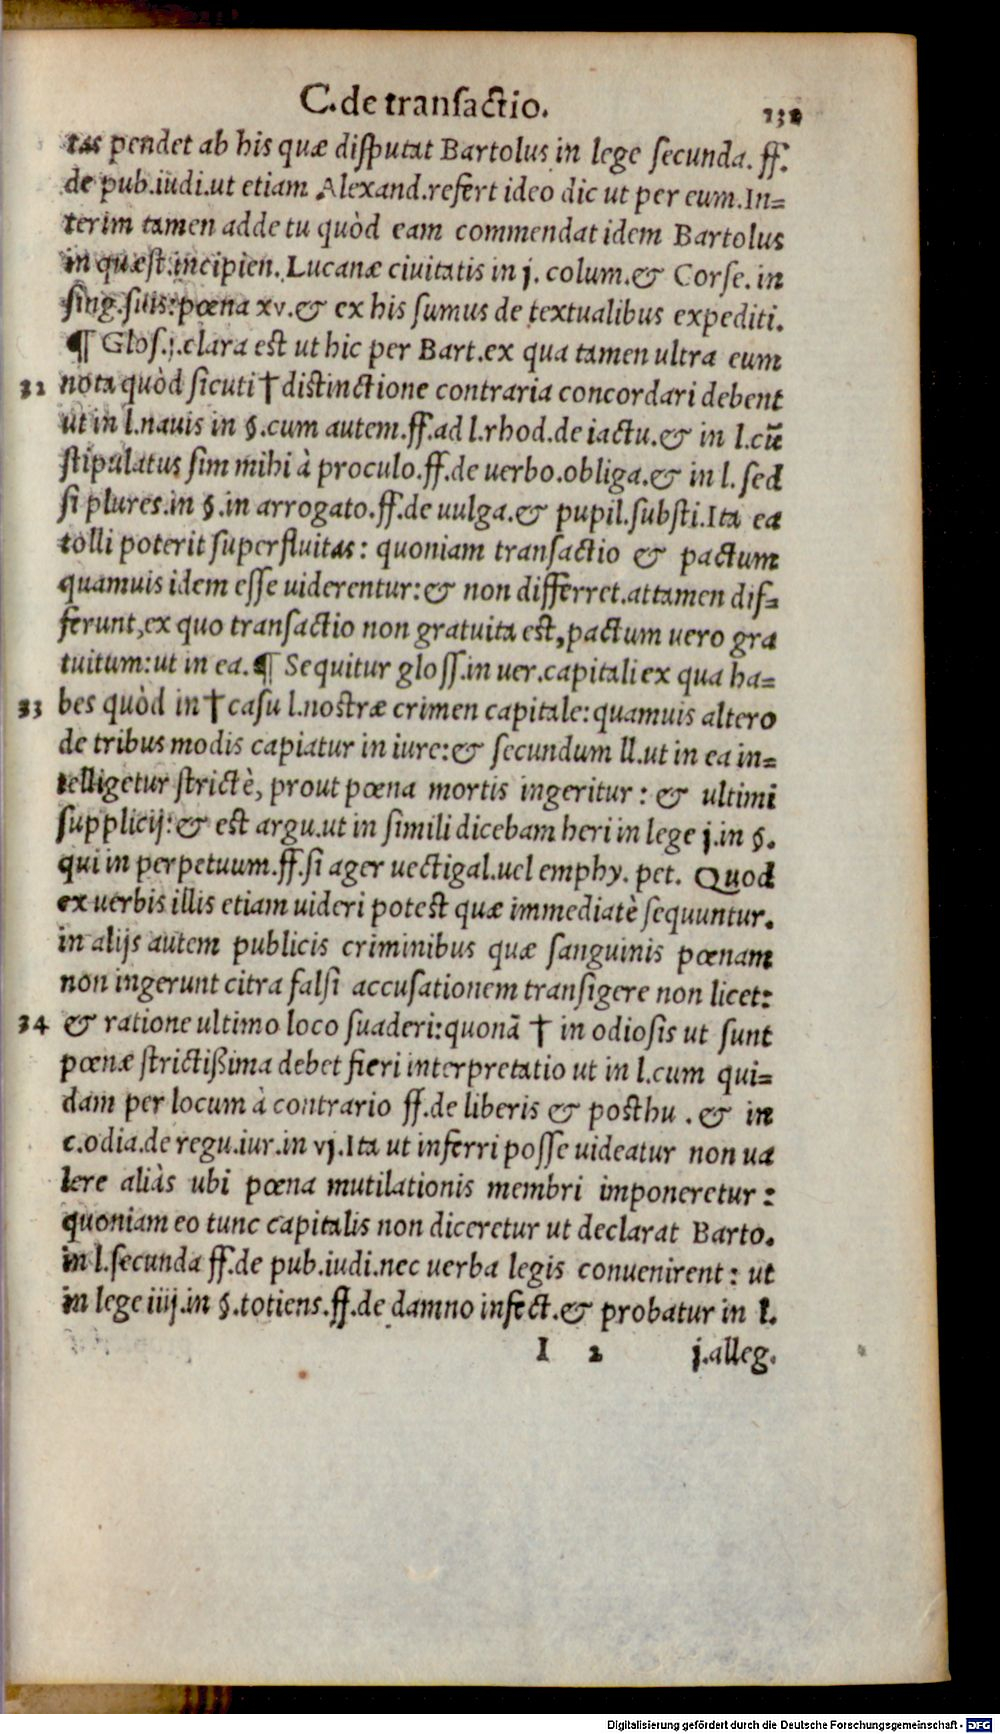 C.de transactio. 132
tas pendet ab his quæ disputat Bartolus in lege secunda. ff.
de pub.iudi.ut etiam Alexand.refert ideo dic ut per eum.In=
terim tamen adde tu quòd eam commendat idem Bartolus
in quæst.incipien. Lucanæ ciuitatis in j. colum.& Corse. in
sing.suis:pœna xv.& ex his sumus de textualibus expediti.
¶ Glos.j.clara est ut hic per Bart.ex qua tamen ultra eum
32 nota quòd sicuti † distinctione contraria concordari debent
ut in l.nauis in §.cum autem.ff.ad l.rhod.de iactu.& in l.cū
stipulatus sim mihi à proculo.ff.de uerbo.obliga.& in l. sed
si plures.in §.in arrogato.ff.de uulga.& pupil.substi.Ita ea
tolli poterit superfluitas: quoniam transactio & pactum
quamuis idem esse uiderentur:& non differret.attamen dif=
ferunt,ex quo transactio non gratuita est,pactum uero gra
tuitum:ut in ea. ¶ Sequitur gloss.in uer.capitali ex qua ha=
33 bes quòd in † casu l.nostræ crimen capitale:quamuis altero
de tribus modis capiatur in iure:& secundum ll.ut in ea in=
telligetur strictè, prout pœna mortis ingeritur : & ultimi
supplicij:& est argu.ut in simili dicebam heri in lege j.in §.
qui in perpetuum.ff.si ager uectigal.uel emphy. pet. Quod
ex uerbis illis etiam uideri potest quæ immediatè sequuntur.
in alijs autem publicis criminibus quæ sanguinis pœnam
non ingerunt citra falsi accusationem transigere non licet:
34 & ratione ultimo loco suaderi:quonā † in odiosis ut sunt
pœnæ strictißima debet fieri interpretatio ut in l.cum qui=
dam per locum à contrario ff.de liberis & posthu . & in
c.odia.de regu.iur.in vj.Ita ut inferri posse uideatur non ua
lere aliàs ubi pœna mutilationis membri imponeretur :
quoniam eo tunc capitalis non diceretur ut declarat Barto.
in l.secunda ff.de pub.iudi.nec uerba legis conuenirent : ut
in lege iiij.in §.totiens.ff.de damno infect.& probatur in l.
I 2 j.alleg.
Digitalisierung gefördert durch die Deutsche Forschungsgemeinschaft - DFG